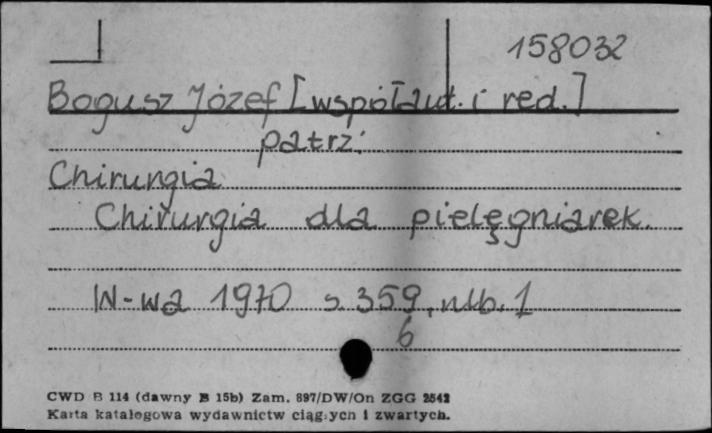 158032
Bogusz Józef [współaut. i red.]
patrz:
Chirurgia
Chirurgia dla pielęgniarek.
W-wa 1970 s. 359, nlb. 1
6
CWD B 114 (dawny B 15b) Zam. 897/DW/On ZGG 2542
Karta katalogowa wydawnictw ciągłych i zwartych.